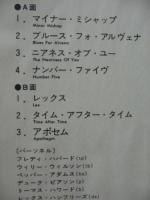 ●A面
1、マイナー・ミシャップ
Minor Mishap
2、ブルース・フォ・アルヴェナ
Blues For Alvena
3、ニアネス・オブ・ユー
The Nearness Of You
4、ナンバー・ファイヴ
Number Five
●B面
1、レックス
Lex
2、タイム・アフター・タイム
Time After Time
3、アポセム
Apothegm
(パーソネル)
フレディ・ハバード(tp)
ウィリー・ウィルソン(tb)
ペッパー・アダムス(bs)
デューク・ピアソン(p)
トーマス・ハワード(b)
レックス・ハンフリーズ(ds)